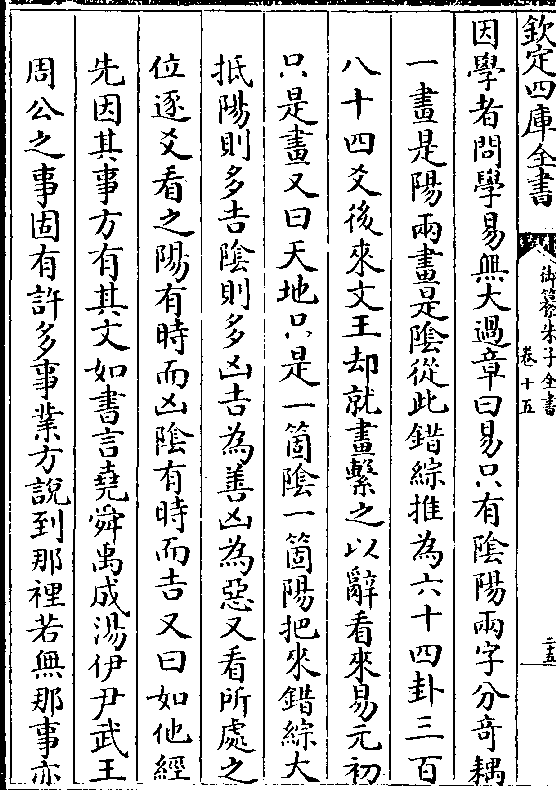 欽定四庫全書
御纂朱子全書
卷十五
二五
因學者問學易無大過章曰易只有陰陽兩字分竒耦
一畫是陽兩畫是陰從此錯綜推為六十四卦三百
八十四爻後來文王却就畫繫之以辭看來易元初
只是畫又曰天地只是一箇陰一箇陽把來錯綜大
抵陽則多吉陰則多凶吉為善凶為惡又看所處之
位逐爻看之陽有時而凶陰有時而吉又曰如他經
先因其事方有其文如書言堯舜禹成湯伊尹武王
周公之事固有許多事業方說到那裡若無那事亦